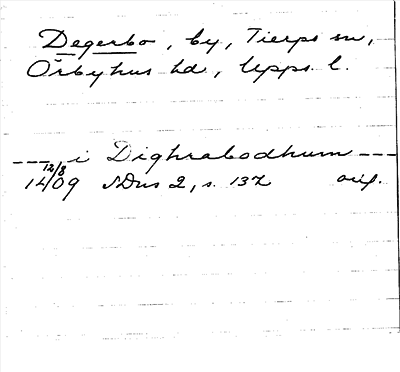 Degerbo, by, Tierps sn,
Örbyhus hd, Upps. l.
--- i Dighrabodhum ---
12/8
1409 SDns 2, s. 137 orig.